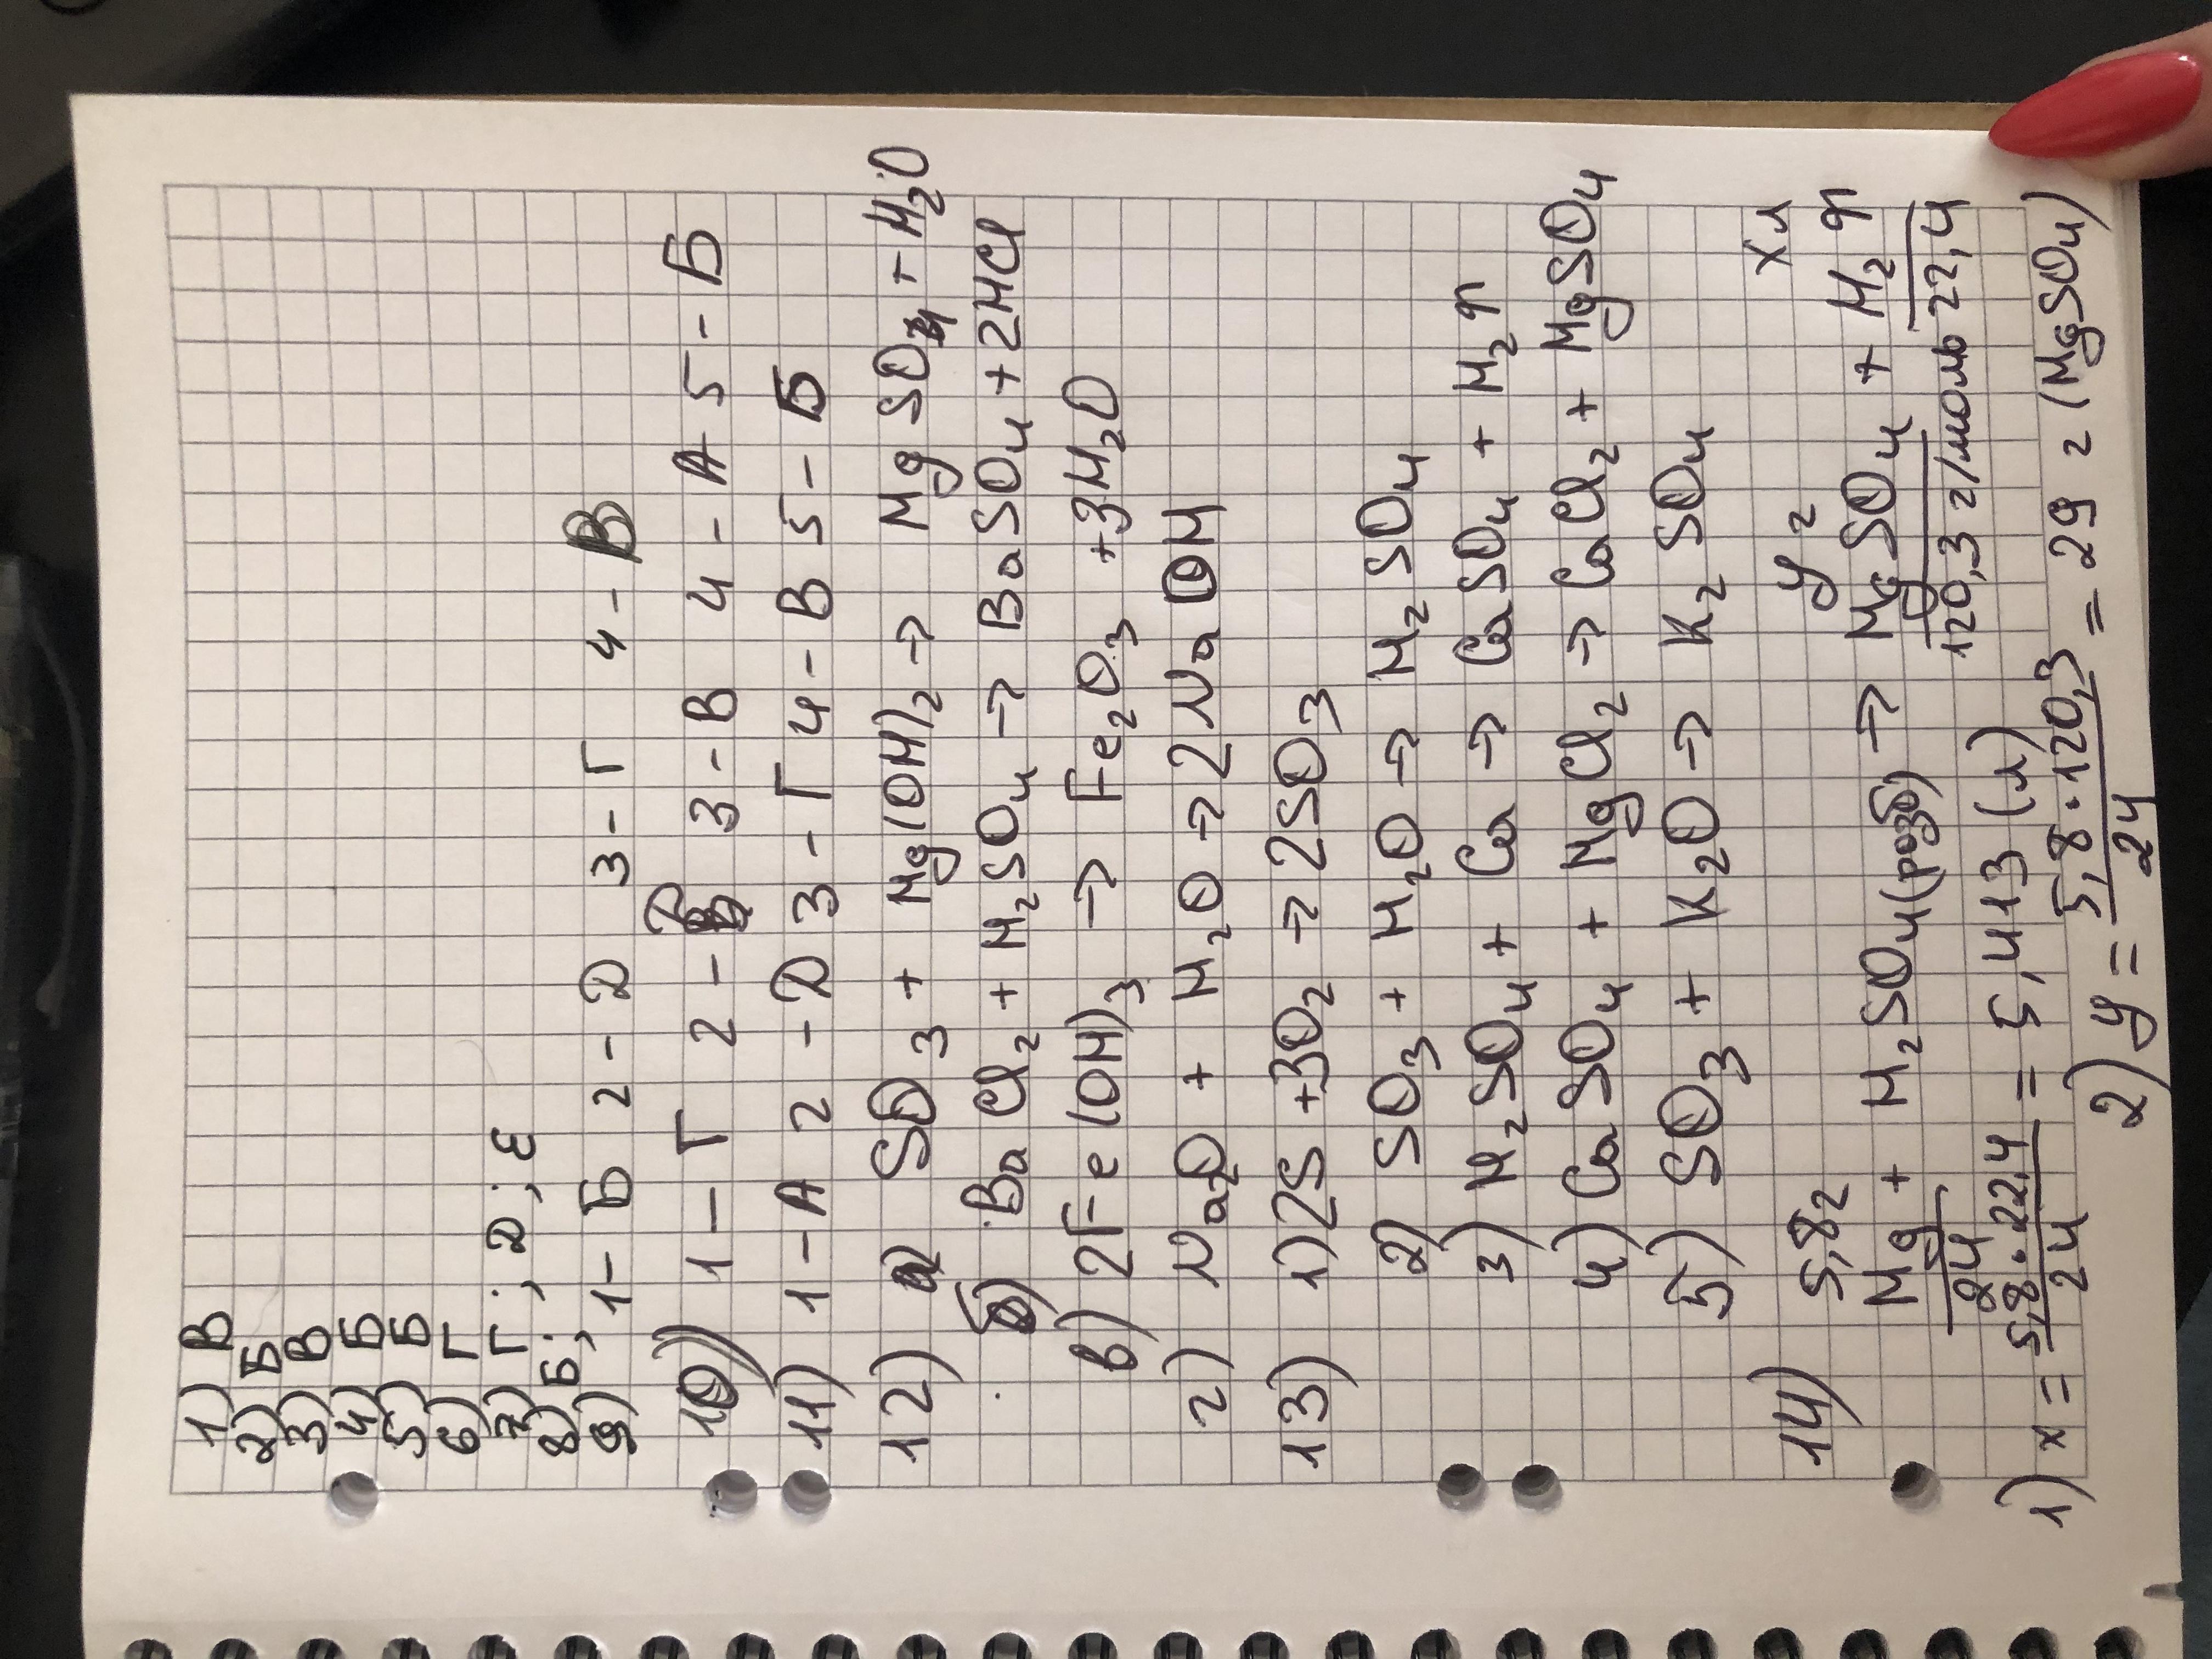 1) В
2) Б
3) В
4) Б
5) Б
6) Г
7) Г; Д; Е
8) Б;
9) 1-Б 2-Д 3-Г 4-В
10) 1-Г 2- 3-В 4-А 5-Б
11) 1-А 2-Д 3-Г 4-В 5-Б
12) а) SO3 + Mg(OH)2 → MgSO4 + H2O
б) BaCl2 + H2SO4 → BaSO4 + 2HCl
в) 2Fe(OH)3 → Fe2O3 + 3H2O
г) Na2O + H2O → 2NaOH
13) 1) 2S + 3O2 → 2SO3
2) SO3 + H2O → H2SO4
3) H2SO4 + Ca → CaSO4 + H2↑
4) CaSO4 + MgCl2 → CaCl2 + MgSO4
5) SO3 + K2O → K2SO4
14) 5,8г yг xл
Mg + H2SO4(розб) → MgSO4 + H2↑
24 120,3 г/моль 22,4
1) x = 5,8·22,4 / 24 = 5,413 (л)
2) y = 5,8·120,3 / 24 = 29 г (MgSO4)